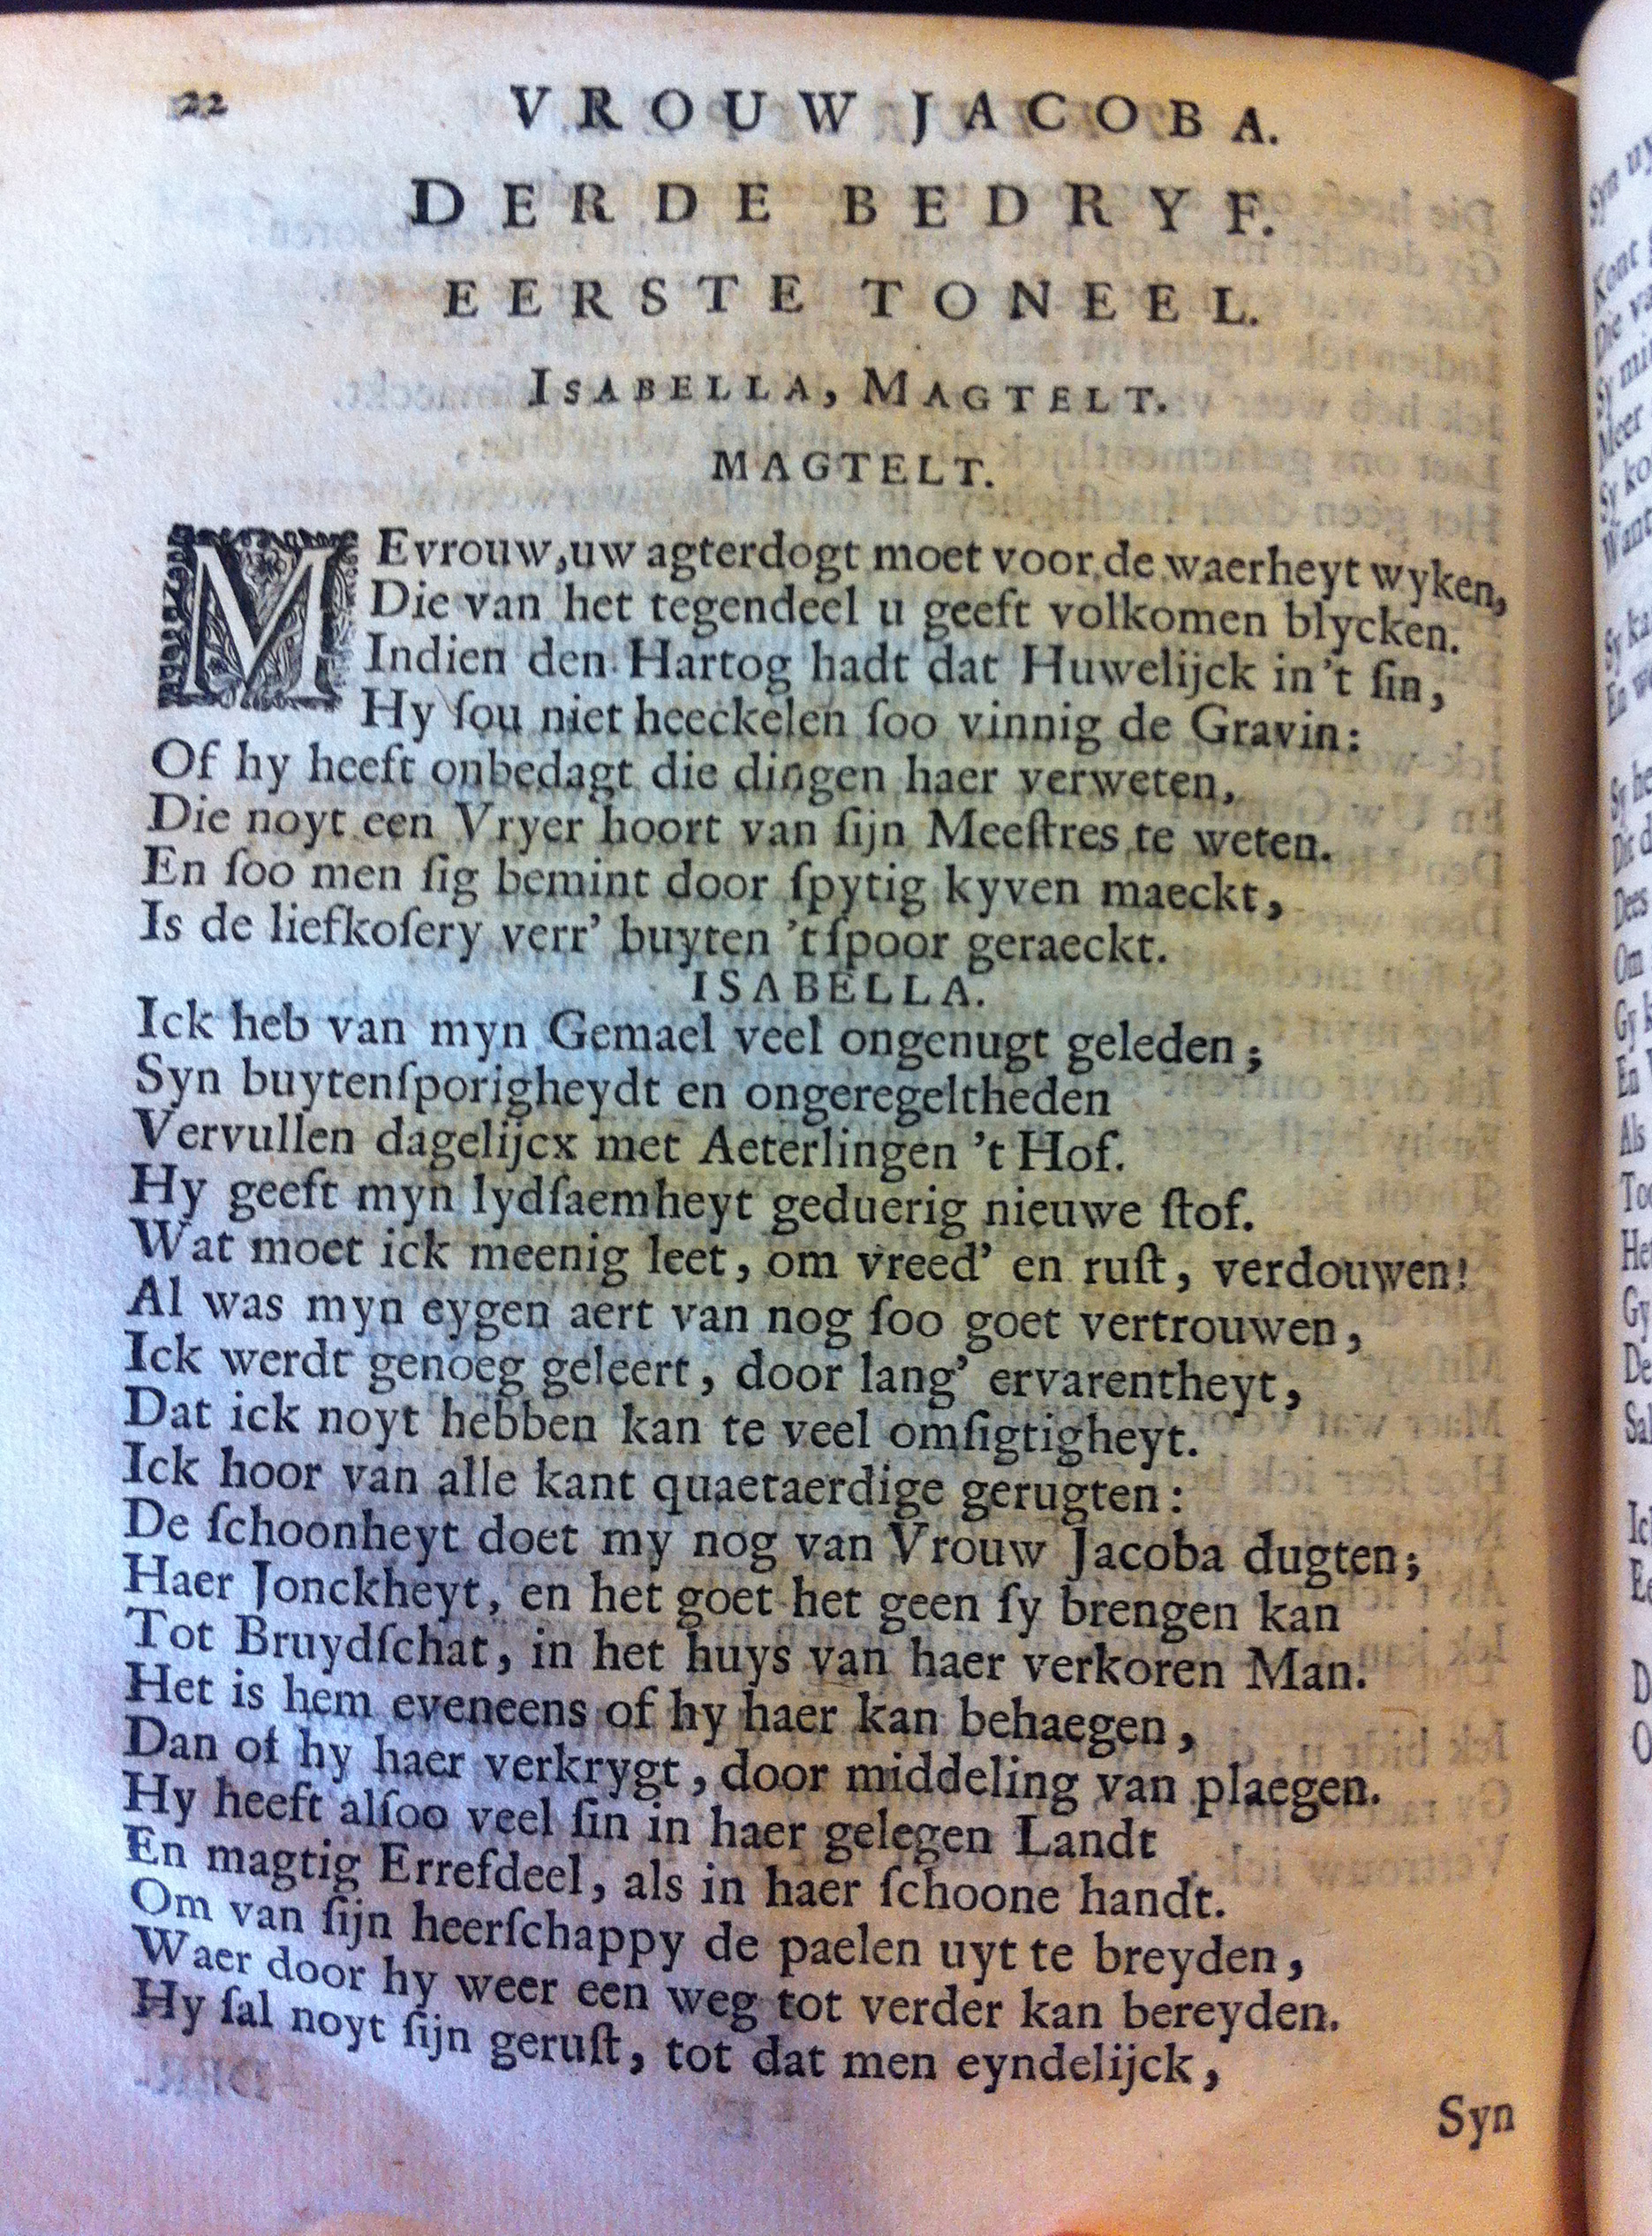 22 VROUW JACOBA.
DERDE BEDRYF.
EERSTE TONEEL.
ISABELLA, MAGTELT.
MAGTELT.
MEvrouw, uw agterdogt moet voor de waerheyt wyken,
Die van het tegendeel u geeft volkomen blycken.
Indien den Hartog hadt dat Huwelijck in 't ſin,
Hy ſou niet heeckelen ſoo vinnig de Gravin:
Of hy heeft onbedagt die dingen haer verweten,
Die noyt een Vryer hoort van ſijn Meeſtres te weten.
En ſoo men ſig bemint door ſpytig kyven maeckt,
Is de liefkoſery verr' buyten 't ſpoor geraeckt.
ISABELLA.
Ick heb van myn Gemael veel ongenugt geleden;
Syn buytenſporigheydt en ongeregeltheden
Vervullen dagelijcx met Aeterlingen 't Hof.
Hy geeft myn lydſaemheyt geduerig nieuwe ſtof.
Wat moet ick meenig leet, om vreed' en ruſt, verdouwen!
Al was myn eygen aert van nog ſoo goet vertrouwen,
Ick werdt genoeg geleert, door lang' ervarentheyt,
Dat ick noyt hebben kan te veel omſigtigheyt.
Ick hoor van alle kant quaetaerdige gerugten:
De ſchoonheyt doet my nog van Vrouw Jacoba dugten;
Haer Jonckheyt, en het goet het geen ſy brengen kan
Tot Bruydſchat, in het huys van haer verkoren Man.
Het is hem eveneens of hy haer kan behaegen,
Dan of hy haer verkrygt, door middeling van plaegen.
Hy heeft alſoo veel ſin in haer gelegen Landt
En magtig Erreſdeel, als in haer ſchoone handt.
Om van ſijn heerſchappy de paelen uyt te breyden,
Waer door hy weer een weg tot verder kan bereyden.
Hy ſal noyt ſijn geruſt, tot dat men eyndelijck,
Syn